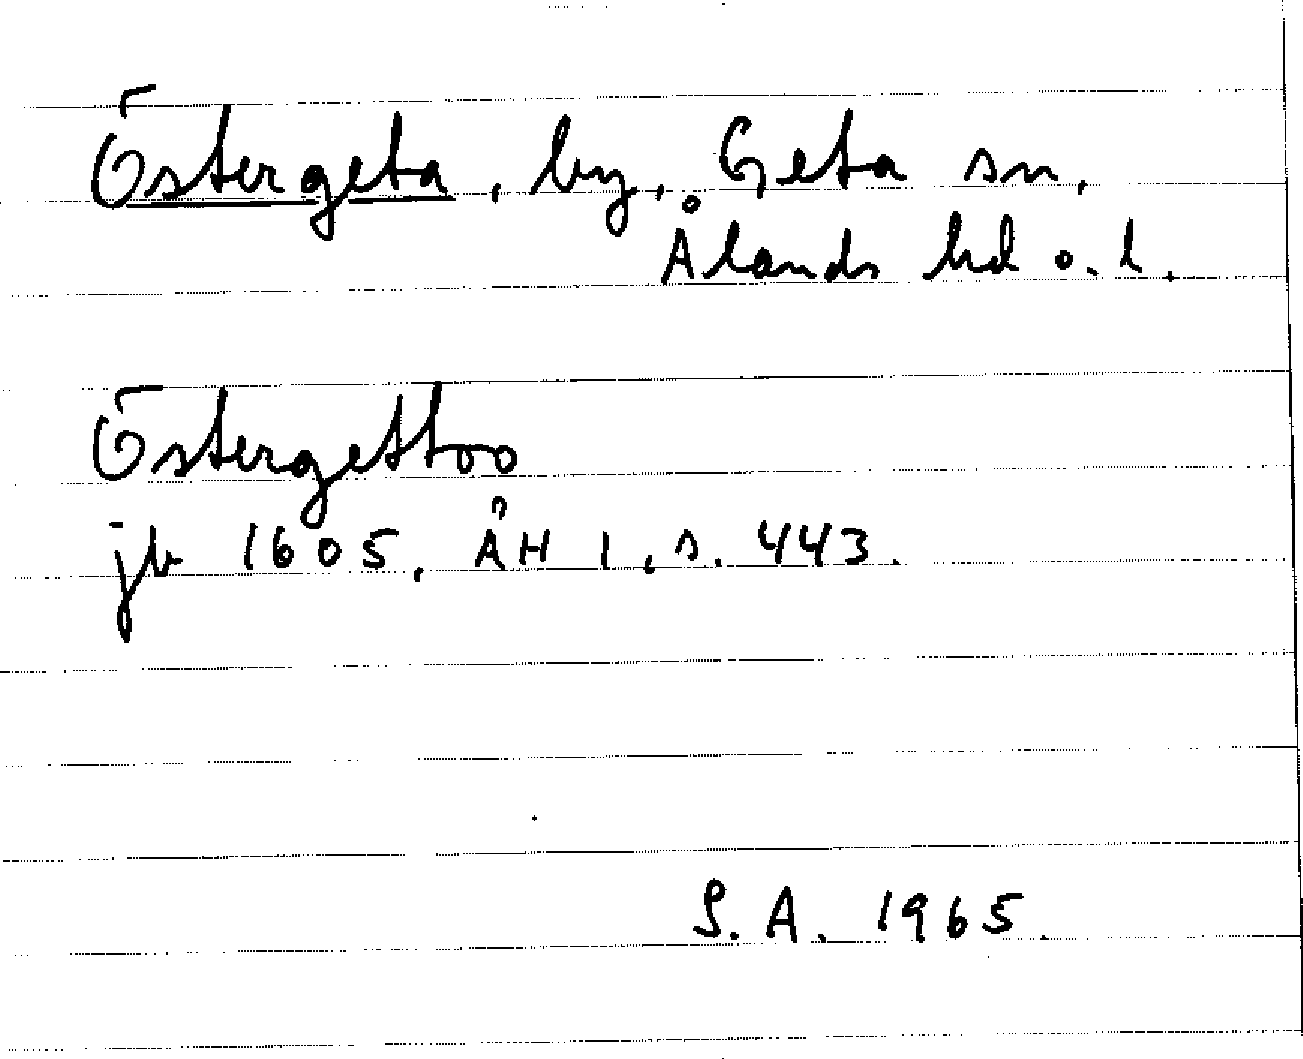 Östergeta, by, Geta sn,
Ålands hd o. l.
Östergettoo
jb 1605, ÅH 1, s. 443.
S.A. 1965.